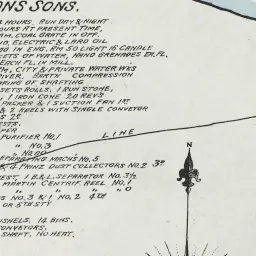 ONS SONS.
HOURS. RUN DAY & NIGHT.
OURS AT PRESENT TIME,
AM. COAL GRATE IN OFF.
D, ELECTRIC & LARD OIL
IN ENG. RM. 50 LIGHT 16 CANDLE
SETS OF WATER, HAND GRENADES EA. FL.
EACH FL. IN MILL.
M, CITY & PRIVATE WATER WKS
VER. BARTH COMPRESSION
RING OF SHAFTING
SETS ROLLS, 1 RUN STONE,
, 1 IRON CONE 20 REVS
PACKER & 1 SUCTION FAN 1ST
& 2 REELS WITH SINGLE CONVEYOR
2º
ESTS.
PURIFIER No. 1
LINE
" No. 3
" No. 00
N
MACHS No. 5
4 PRINZ DUST COLLECTORS No. 2 3º.
EST, 1 B. & L. SEPARATOR No. 3½
MARTIN CENTRIF. REEL No. 1
" " " 0
No. 3 & 1 No. 2 4TH
OR 5TH STY
USHELS, 14 BINS.
CONVEYORS,
SHAFT, NO HEAT.